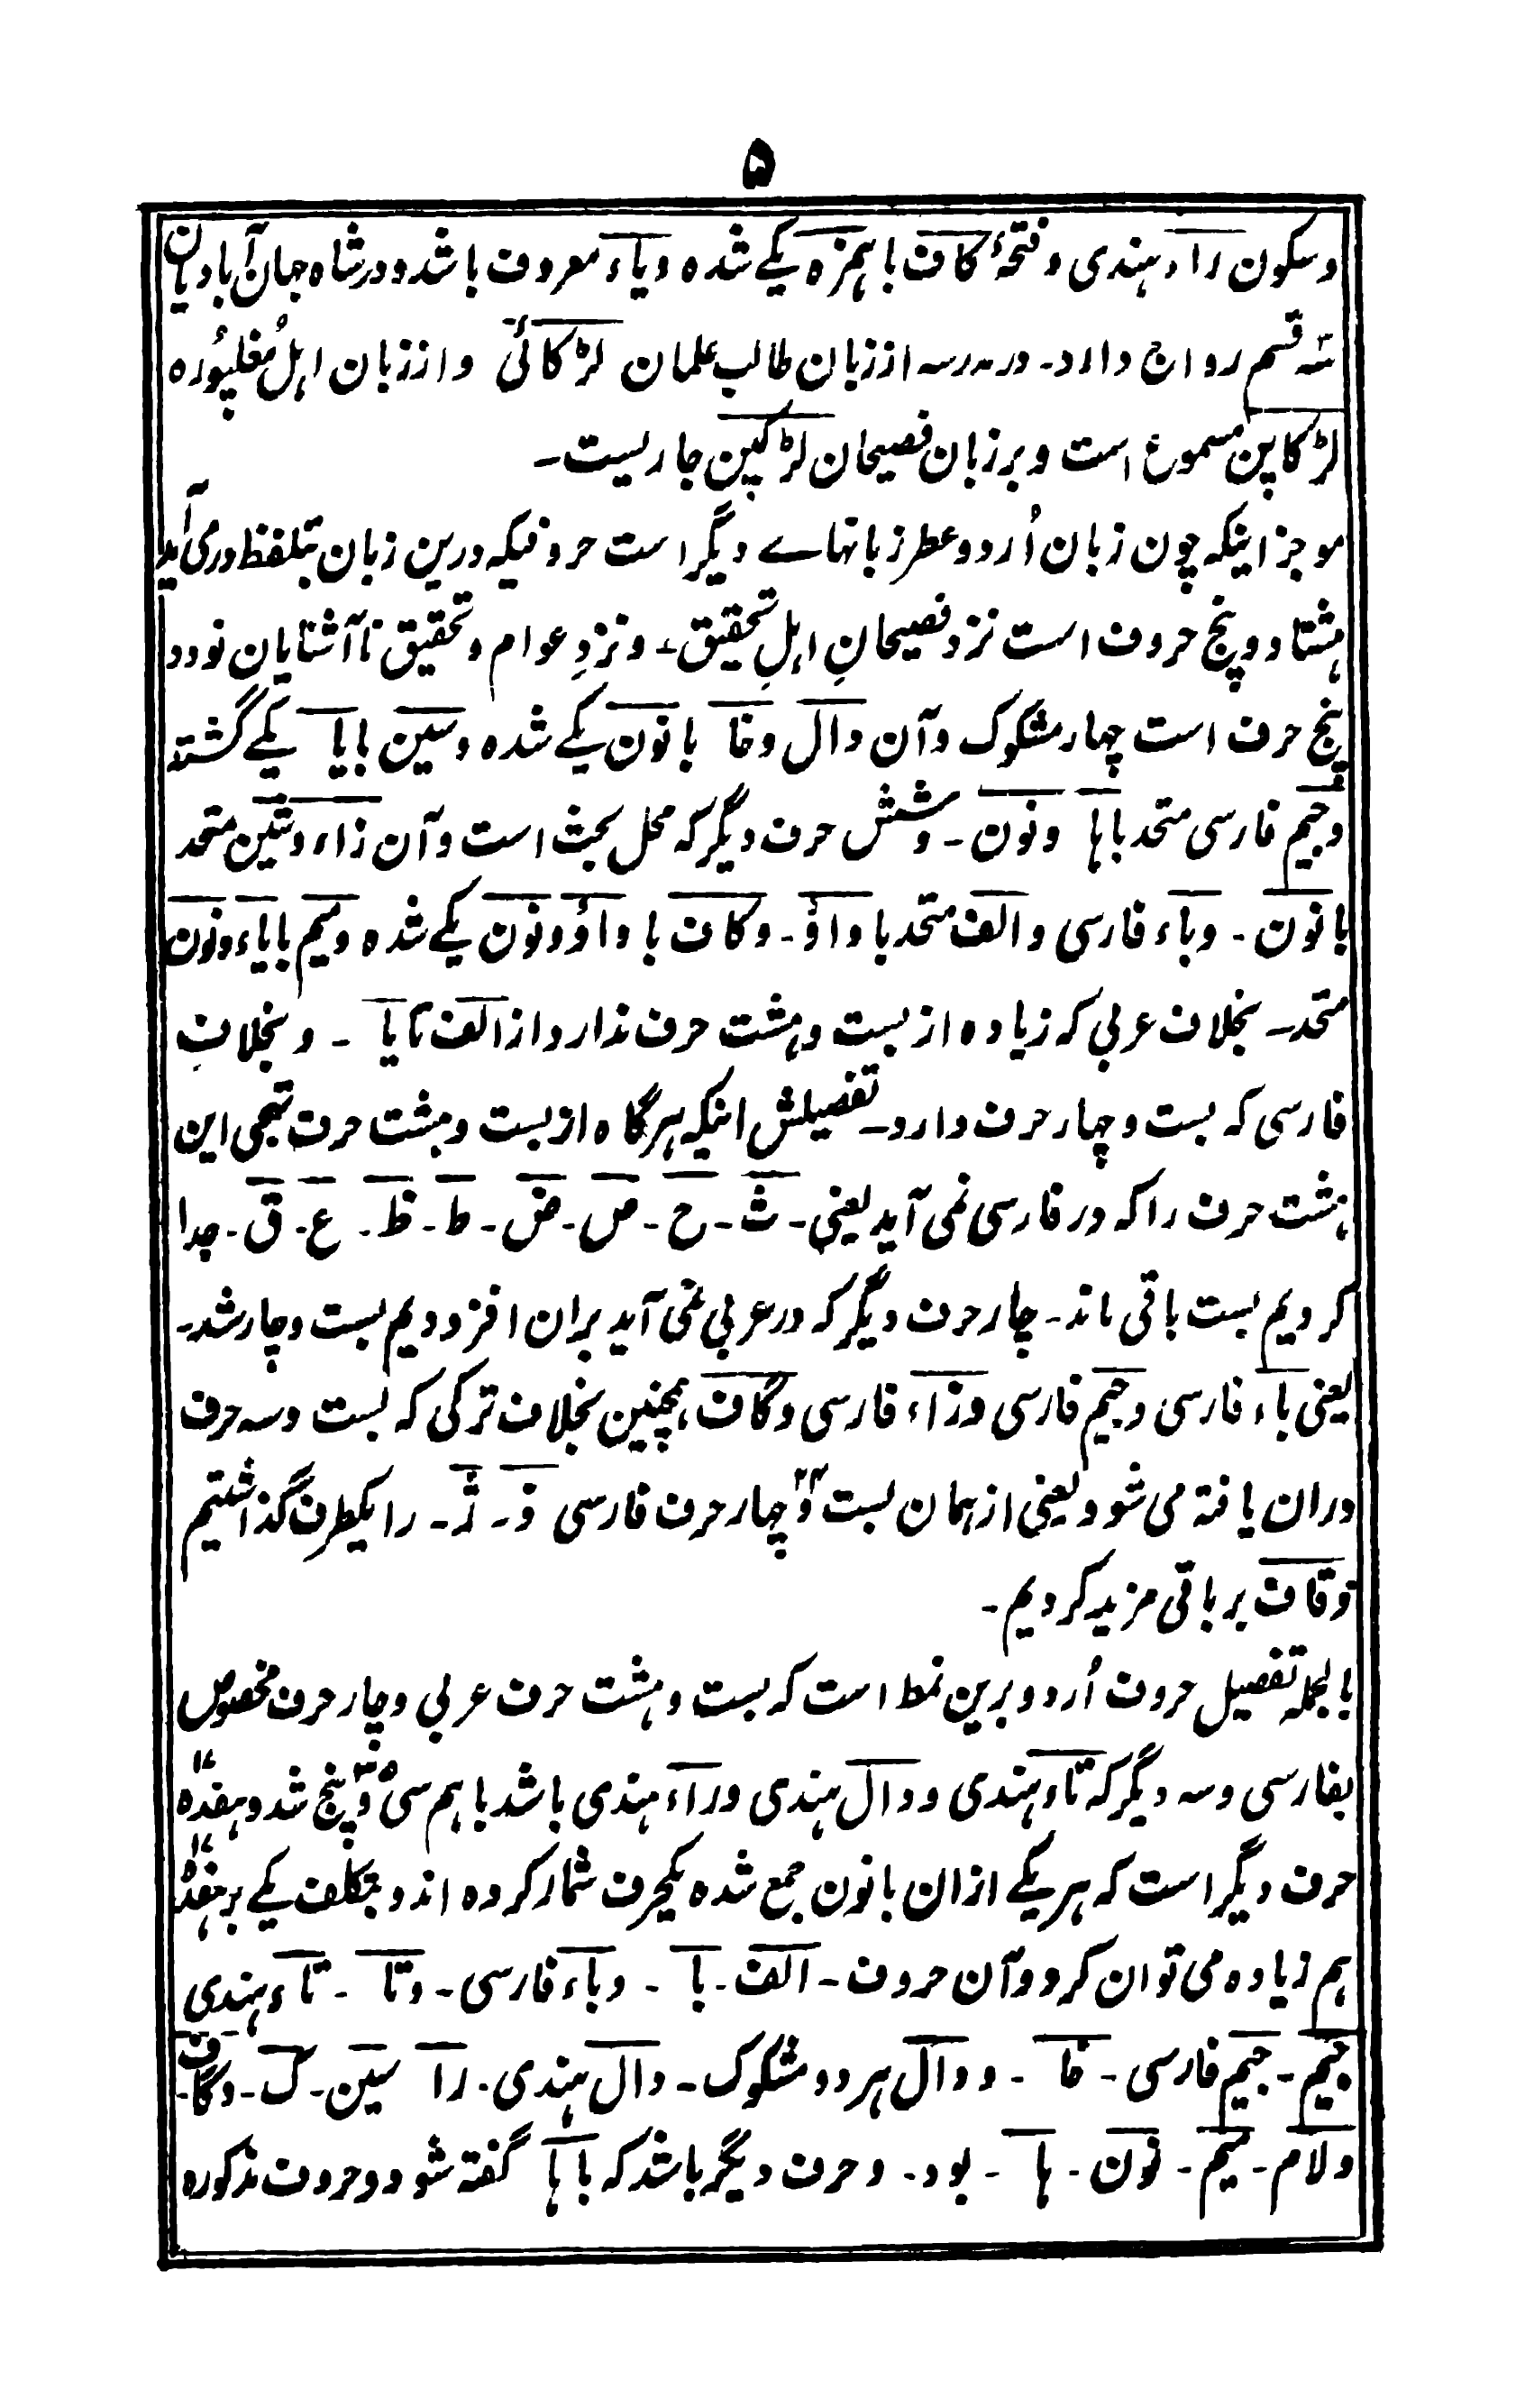 ۵
وسکون راء ہندی و فتحۂ کاف با ہمزہ یکے شدہ و یاء معروف باشد و در شاہ جہان آباد بآن
سہ قسم رواج دارد۔ در مدرسہ از زبان طالب علمان لڑکائی و از زبان اہلِ مغلپُورہ
لڑکاپن مسموع است و بر زبان فصیحان لڑکپن جاریست۔
موجز اینکہ چون زبان اُردو عطر زبانہاے دیگر است حروفیکہ درین زبان بتلفظ درمی آید
ہشتاد و پنج حروف است نزد فصیحانِ اہلِ تحقیق، و نزدِ عوام و تحقیق نا آشنایان نود و
پنج حرف است چہار مشکوک و آن دال و خا با نون یکے شدہ و سین با یا یکے گشتہ
و جیم فارسی متحد با ہا و نون۔ و شش حرف دیگر کہ محل بحث است و آن زاء و شین متحد
با نون۔ و باء فارسی و الف متحد با واؤ۔ و کاف با واؤ و نون یکے شدہ و میم با یاء و نون
متحد۔ بخلاف عربی کہ زیادہ از بست و ہشت حرف ندارد از الف تا یا ۔ و بخلافِ
فارسی کہ بست و چہار حرف دارد۔ تفصیلش اینکہ ہرگاہ از بست و ہشت حرف تہجی این
ہشت حرف را کہ در فارسی نمی آید یعنی۔ ث۔ ح۔ ص۔ ض۔ ط۔ ظ۔ ع۔ ق۔ جدا
کردیم بست باقی ماند۔ چار حرف دیگر کہ در عربی نمی آید بران افزودیم بست و چار شد۔
یعنی باء فارسی و جیم فارسی و زاء فارسی و گاف، ہمچنین بخلاف ترکی کہ بست و سہ حرف
دران یافتہ می شود یعنی از ہمان بست و چہار حرف فارسی ذ۔ ژ۔ را یکطرف گذاشتیم
و قاف بر باقی مزید کردیم۔
بالجملہ تفصیل حروف اُردو برین نمط است کہ بست و ہشت حرف عربی و چار حرف مخصوص
بفارسی و سہ دیگر کہ تاء ہندی و دال ہندی و راء ہندی باشد باہم سی و پنج شد و ہفدہ
حرف دیگر است کہ ہر یکے ازان با نون جمع شدہ یکحرف شمار کردہ اند و بتکلف یکے بر ہفدہ
ہم زیادہ می توان کرد و آن حروف۔ الف۔ با ۔ و باء فارسی۔ و تا ۔ تاء ہندی
جیم۔ جیم فارسی۔ خا ۔ و دال ہر دو مشکوک۔ دال ہندی۔ را سین۔ ک۔ و گاف
و لام۔ میم۔ نون۔ ہا ۔ بود۔ و حرف دیگر باشد کہ با ہا گفتہ شود و حروف مذکورہ